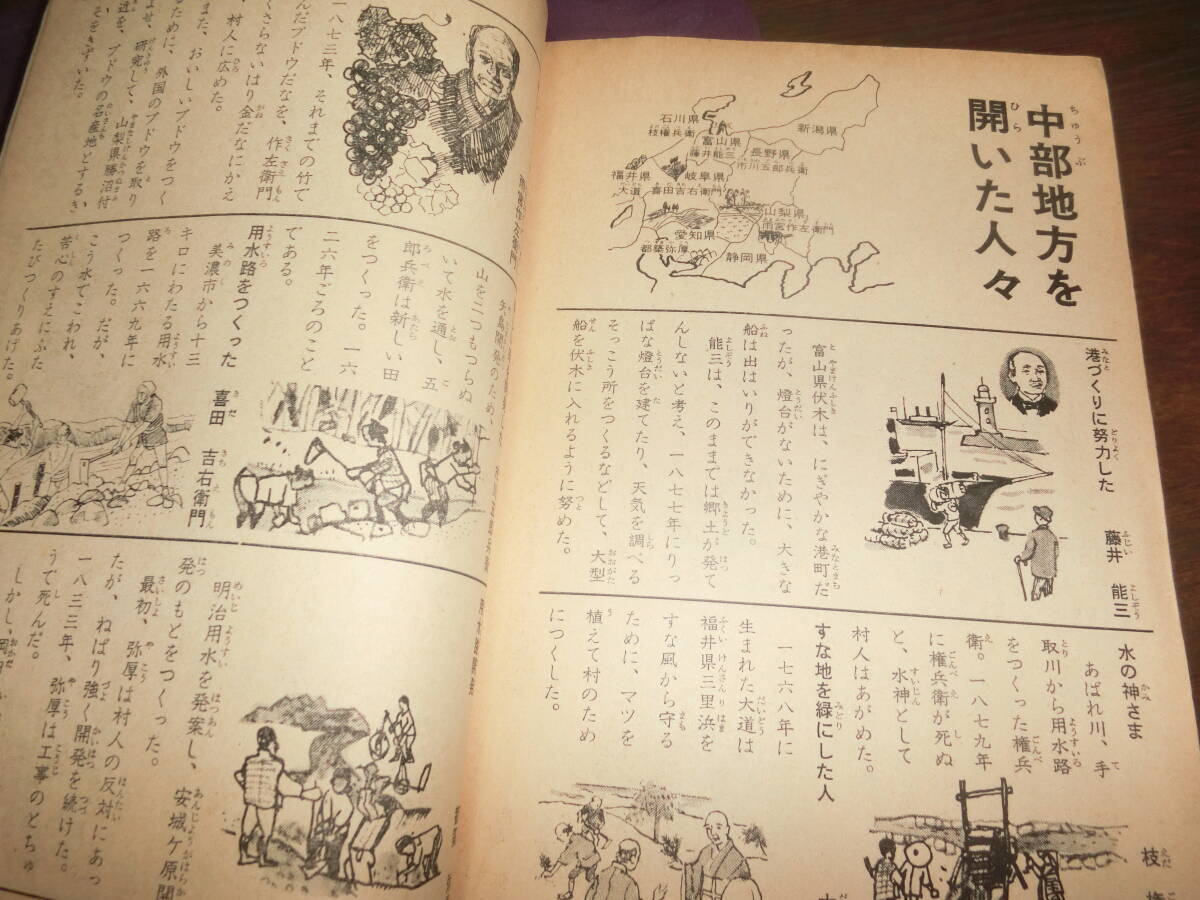 中部地方を
開いた人々
石川県
枝権兵衛
富山県
藤井能三
新潟県
長野県
市川五郎兵衛
福井県
大道
岐阜県
喜田吉右衛門
山梨県
雨宮作左衛門
愛知県
都築弥厚
静岡県
港づくりに努力した
藤井 能三
富山県伏木は、にぎやかな港町だ
ったが、燈台がないために、大きな
船は出はいりができなかった。
能三は、このままでは郷土が発て
んしないと考え、一八七七年にりっ
ぱな燈台を建てたり、天気を調べる
そっこう所をつくるなどして、大型
船を伏木に入れるように努めた。
水の神さま
あばれ川、手
取川から用水路
をつくった権兵
衛。一八七九年
に権兵衛が死ぬ
と、水神として
村人はあがめた。
枝 権
すな地を緑にした人
一七六八年に
生まれた大道は
福井県三里浜を
すな風から守る
ために、マツを
植えて村のため
につくした。
一八七三年、それまでの竹で
んだブドウだなを、作左衛門
くさらないはり金だなにかえ
、村人に広めた。
また、おいしいブドウをつく
るために、外国のブドウを取り
よせ、研究して、山梨県勝沼付
近を、ブドウの名産地とするき
そをきずいた。
山を二つもつらぬ
いて水を通し、五
郎兵衛は新しい田
をつくった。一六
二六年ごろのこと
である。
用水路をつくった
喜田 吉右衛門
美濃市から十三
キロにわたる用水
路を一六六九年に
つくった。だが、
こう水でこわれ、
苦心のすえにふた
たびつくりあげた。
明治用水を発案し、安城ケ原開
発のもとをつくった。
最初、弥厚は村人の反対にあっ
たが、ねばり強く開発を続けた。
一八三三年、弥厚は工事のとちゅ
うで死んだ。
しかし、岡